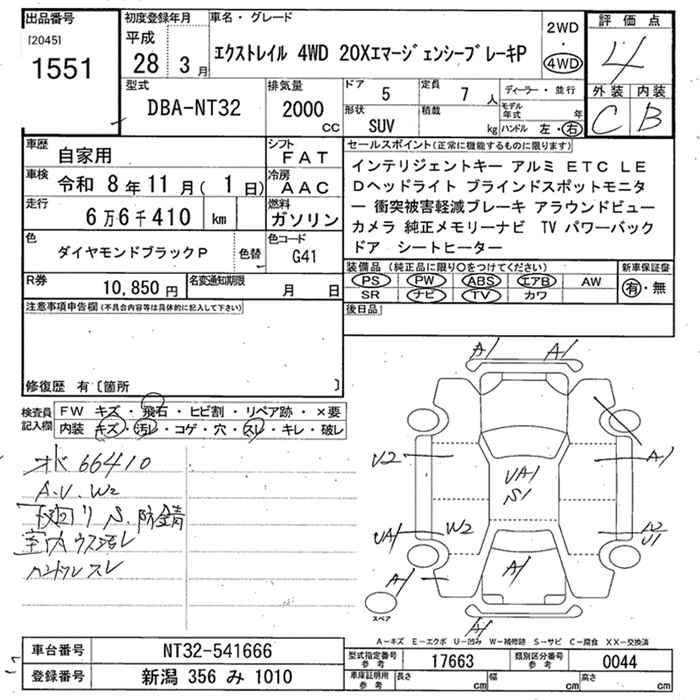 出品番号
[2045]
1551
初度登録年月
平成
28 3月
車名・グレード
エクストレイル 4WD 20XエマージェンシーブレーキP
2WD
・
4WD
評価点
4
外装 内装
C B
型式
DBA-NT32
排気量
2000
cc
ドア
5
定員
7 人
形状
SUV
積載
kg
ディーラー・並行
モデル年式 年
ハンドル 左・右
車歴
自家用
シフト
FAT
車検 令和 8年11月(1日)
冷房
AAC
走行
6万6千410 km
燃料
ガソリン
色
ダイヤモンドブラックP
色替
色コード
G41
R券
10,850円
名変通知期限
月 日
セールスポイント(正常に機能するものに限ります)
インテリジェントキー アルミ ETC LE
Dヘッドライト ブラインドスポットモニタ
ー 衝突被害軽減ブレーキ アラウンドビュー
カメラ 純正メモリーナビ TV パワーバック
ドア シートヒーター
装備品(純正品に限り○をつけてください)
PS PW ABS エアB AW
SR ナビ TV カワ
新車保証書
有・無
後日品
注意事項申告欄(不具合内容等は具体的に記入して下さい)
修復歴 有〔箇所 〕
検査員記入欄
FW キズ・飛石・ヒビ割・リペア跡・×要
内装 キズ・汚レ・コゲ・穴・スレ・キレ・破レ
66410
A.U.W2
下廻り S.防錆
室内ウス汚レ
ハンドルスレ
A1 A1
U2
A1
UA1
S1
UA1
W2
W2
U1
A1
A1
A1
スペア
A-キズ E-エクボ U-凹み W-補修跡 S-サビ C-腐食 XX-交換済
車台番号 NT32-541666
登録番号 新潟 356 み 1010
型式指定番号
参考
17663
類別区分番号
参考
0044
車庫証明用
参考
長さ cm
幅 cm
高さ cm